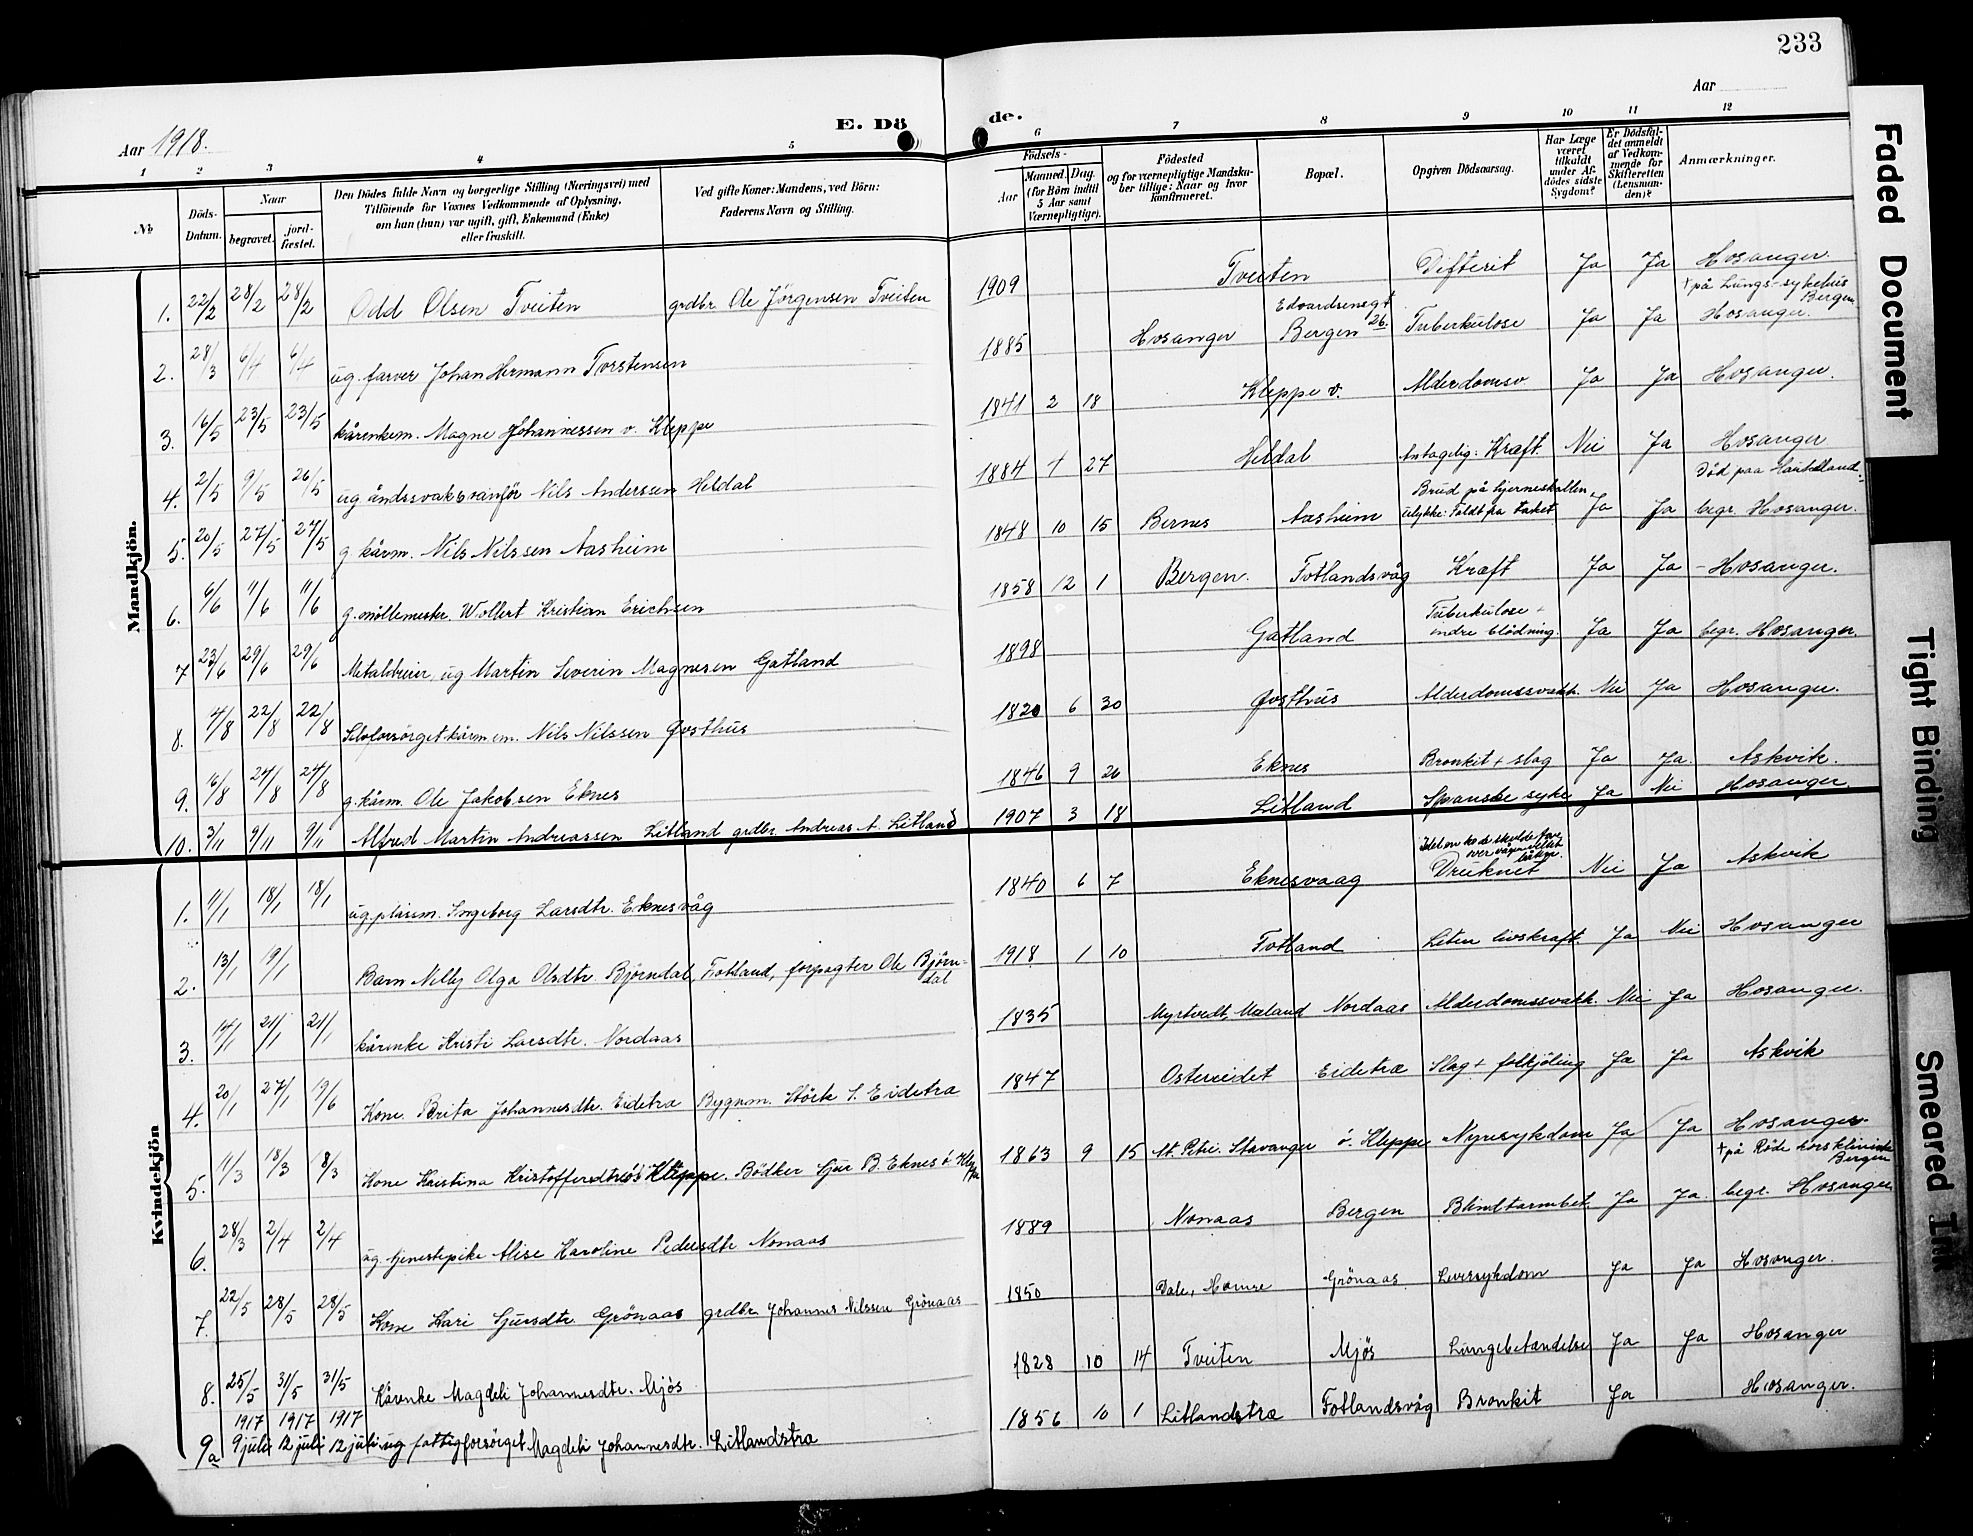 233
Aar 1918.
E. Dö
de.
Aar
1 2 3 4 5 6 7 8 9 10 11 12
№
Döds-Datum.
Naar
begravet.
jord-fæstet.
Den Dödes fulde Navn og borgerlige Stilling (Næringsvei) med
Tilföiende for Voxnes Vedkommende af Oplysning,
om han (hun) var ugift, gift, Enkemand (Enke)
eller fraskilt.
Ved gifte Koner: Mandens, ved Börn:
Faderens Navn og Stilling.
Födsels-
Aar
Maaned. Dag.
(for Börn indtil
5 Aar samt
Værnepligtige).
Födested
og for værnepligtige Mandska-
ber tillige: Naar og hvor
konfirmeret.
Bopæl.
Opgiven Dödsaarsag.
Har Læge
været
tilkaldt
under Af-
dödes sidste
Sygdom?
Er Dödsfal-
det anmeldt
af Vedkom-
mende for
Skifteretten
(Lensman-
den)?
Anmærkninger.
Mandkjön.
1. 22/2 28/2 28/2 Odd Olsen Tveiten grdbr. Ole Jörgensen Tveiten 1909 Tveiten Difterit Ja Ja Hosanger.
2. 28/3 6/4 6/4 ug. farver Johan Hermann Torstensen 1885 Hosanger Edvardsensgt. 26. Bergen Tuberkulose Ja Ja + på Lungesykehus Bergen. Hosanger.
3. 16/5 23/5 23/5 kårenkem. Magne Johannessen v. Kleppe 1841 2 18 Kleppe v. Alderdomsv Ja Ja Hosanger.
4. 2/5 9/5 26/5 ug åndssvak vanför Nils Anderssen Heldal 1884 4 27 Heldal Antagelig: Kræft. Nei Ja Hosanger
5. 20/5 27/5 27/5 g. kårm. Nils Nilssen Aasheim 1848 10 15 Bernes Aasheim Brud på hjerneskallen ulykke: Faldt fra taket Ja Ja Död paa Haukeland begr. Hosanger.
6. 6/6 11/6 11/6 g. möllemester. Wollert Kristian Erichsen 1858 12 1 Bergen. Fotlandsvåg Kræft Ja Ja – Hosanger.
7 23/6 29/6 29/6 Metaldreier, ug Martin Severin Magnesen Gatland 1898 Gatland Tuberkulose + indre blödning. Ja Ja begr. Hosanger.
8. 4/8 22/8 22/8 Selvforsörget kårm em. Nils Nilssen Qvsthus 1820 6 30 Qvsthus Alderdomssvakh. Nei Ja Hosanger.
9. 16/8 24/8 24/8 g. kårm. Ole Jakobsen Eknes 1846 9 26 Eknes Bronkit + slag Ja Ja. Askvik.
10. 3/11 9/11 9/11 Alfred Martin Andreassen Litland grdbr. Andreas A. Litland 1907 3 18 Litland Spanske syke Ja Nei Hosanger.
Kvindekjön
1. 11/1 18/1 18/1 ug. plassm. Ingeborg Larsdtr. Eknesvåg 1840 6 7 Eknesvaag Druknet Nei Ja Askvik
2. 13/1 19/1 Barn Nelly Olga Olsdtr. Björndal, Fotland, forpagter Ole Björn-dal 1918 1 10 Fotland Liten livskraft. Ja Nei Hosanger
3. 14/1 21/1 21/1 kårenke Kristi Larsdtr. Nordaas 1835 Myrtvedt, Mæland Nordaas Alderdomssvakh. Nei Ja Hosanger.
4. 20/1 27/1 19/6 Kone. Brita Johannesdtr. Eidetræ Bygnm. Störk S. Eidetræ 1847 Ostereidet Eidetræ Slag + forkjöling Ja Ja Askvik
5. 11/3 18/3 18/3 Kone Kristina Kristoffersdtr ö Kleppe. Bödker Sjur B. Eknes ö. Kleppe 1863 9 15 St. Petri. Stavanger ö. Kleppe Nyresykdom Ja Ja Hosanger
6. 28/3 2/4 2/4 ug. tjenestepike Alise Karoline Pedersdtr Nonaas 1889 Nonaas Bergen Blindtarmbet. Ja Ja. + på Röde kors klinikk Bergen begr. Hosanger
7. 22/5 28/5 28/5 Kone Kari Sjursdtr. Grönaas grdbr. Johannes Nilssen Grönaas 1850 Dale, Hamre Grönaas Leversykdom Ja Ja Hosanger.
8. 25/5 31/5 31/5 Kårenke Magdeli Johannesdtr. Mjös 1828 10 14 Tveiten Mjös Lungebetændelse Ja Ja Hosanger
1917 1917 1917
9a 9 juli 12 juli 12 juli ug fattigforsörget Magdeli Johannesdtr. Litlandstræ 1856 10 1 Litlandstræ Fotlandsvåg Bronkit Ja Hosanger.
Faded Document
Tight Binding
Smeared Ink